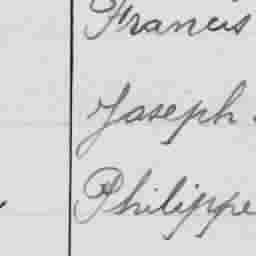 Francis
Joseph
Philippe